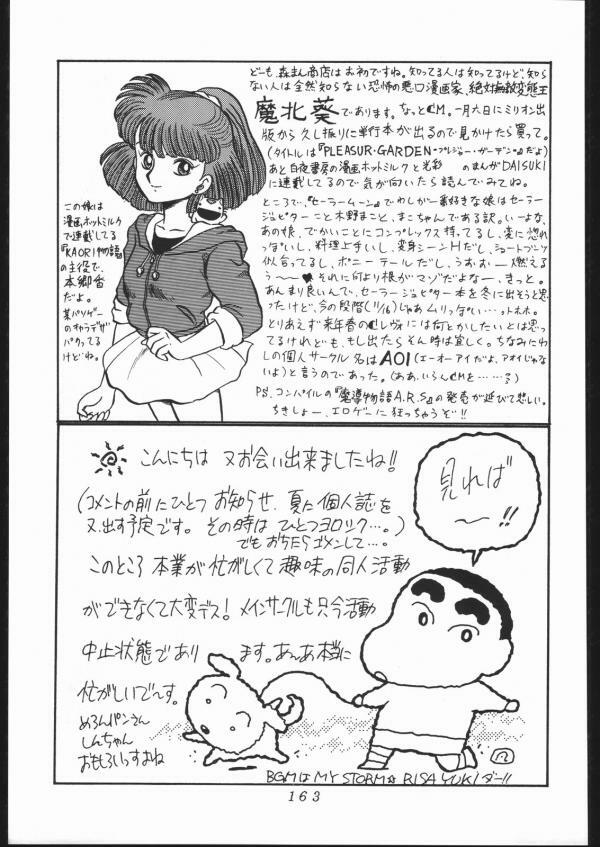 どーも、森まん商店はお初ですね。知ってる人は知ってるけど、知ら
ない人は全然知らない恐怖の悪口漫画家、絶対無敵変態王
魔北葵であります。なっとCM。一月六日にミリオン出
版から久し振りに単行本が出るので見かけたら買って。
(タイトルは『PLEASUR・GARDEN-プレジャー・ガーデン-』だよ)
あと白夜書房の漫画ホットミルクと光彩 のまんがDAISUKI
に連載してるので気が向いたら読んでみてね。
ところで、『セーラームーン』でわしが一番好きな娘はセーラー
ジュピターこと木野まこと、まこちゃんである訳。いーよな、
あの娘、でかいことにコンプレックス持ってるし、変に惚れ
っぽいし、料理上手いし、変身シーンHだし、ショートブーツ
似合ってるし、ポニーテールだし、うおぉー燃えるぅ
う〜〜♥それに何より根がマゾだよなー、きっと。
あんまり良いんで、セーラージュピター本を冬に出そうと思
ったけど、今の段階(11/16)じゃあムリっぽい…ットホホ。
とりあえず来年春のCレヴォには何とかしたいとは思っ
てるけれども、もし出たらそん時は宜しく。ちなみにわ
しの個人サークル名はAOI(エーオーアイだよ、アオイじゃな
いよ)と言うのであった。(ああ、いろんCMを……?)
PS、コンパイルの『魔導物語A.R.S』の発売が延びて悲しい。
ちきしょー、エロゲーに狂っちゃうぞ!!
この娘は
漫画ホットミルク
で連載してる
『KAORI物語』
の主役で、
本郷香
だよ。
某パソゲー
のキャラデザ
パクってる
けどね。
こんにちは 又お会い出来ましたね!!
(コメントの前にひとつお知らせ、夏に個人誌を
又、出す予定です。その時はひとつヨロシク…。)
でもおちたらゴメンして…。
このところ本業が忙がしくて趣味の同人活動
ができなくて大変デス!メインサークルも只今活動
中止状態であり ます。あんあ本当に
忙がしいで〜す。
めろんパンさん
しんちゃん
おもろいっすよね
見れば
〜!!
BGMはMY STORM☆RISA YUKIダー!!
163